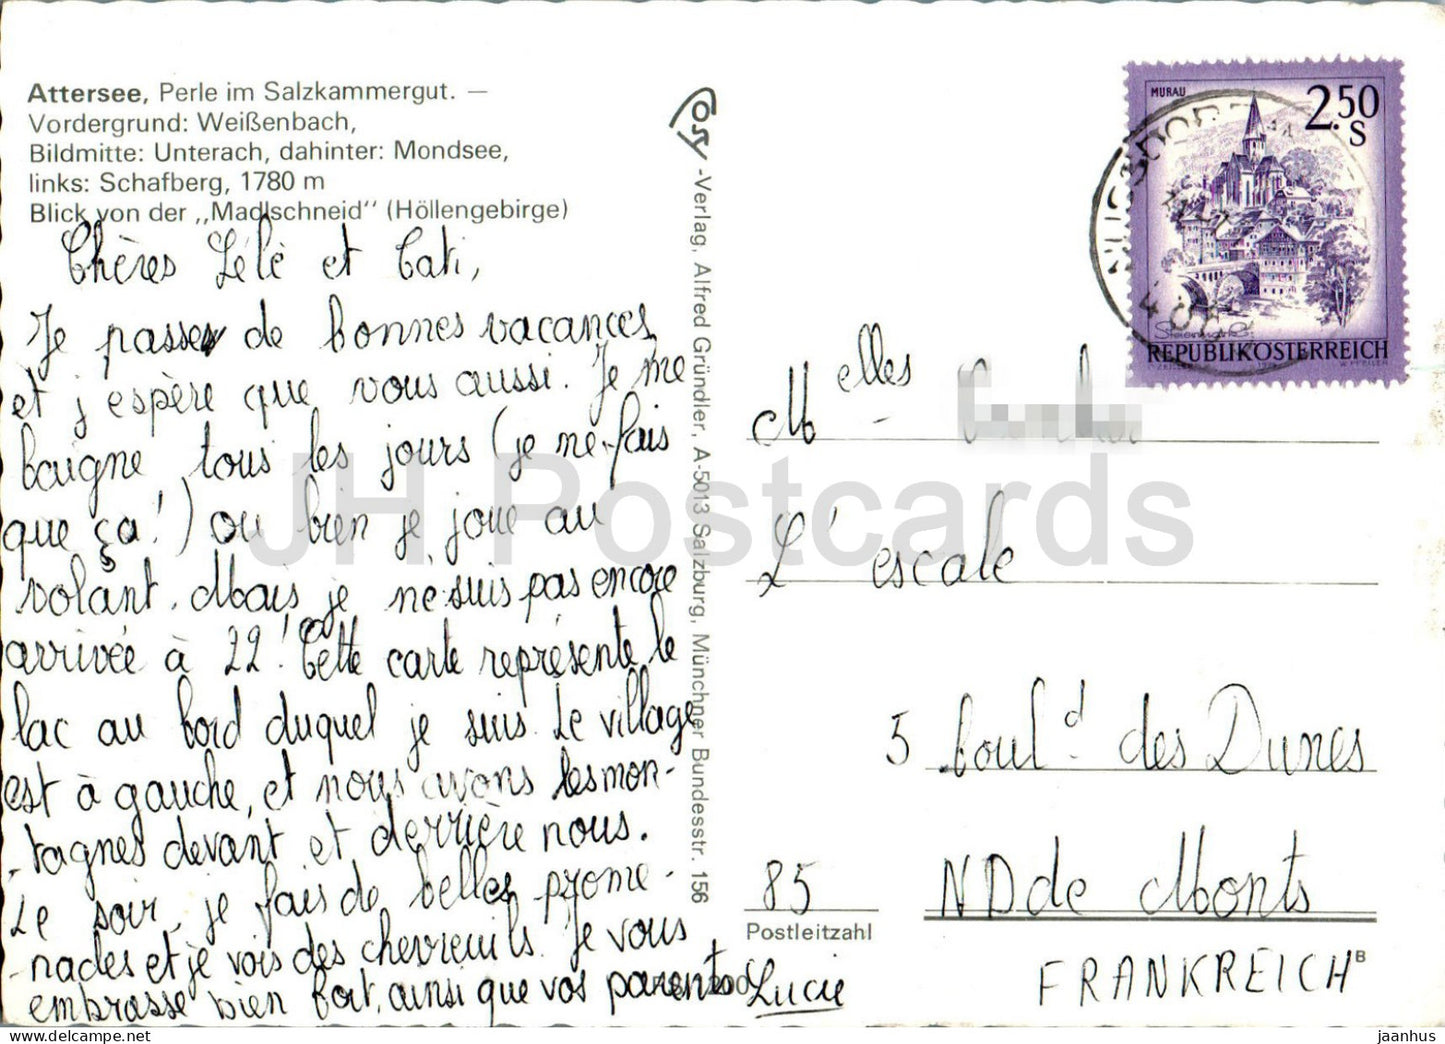 Attersee, Perle im Salzkammergut. —
Vordergrund: Weißenbach,
Bildmitte: Unterach, dahinter: Mondsee,
links: Schafberg, 1780 m
Blick von der „Madlschneid" (Höllengebirge)
Chères Lélé et Cati,
Je passe de bonnes vacances
et j'espère que vous aussi. Je me
baigne tous les jours (je ne fais
que ça!) ou bien je joue au
volant. Mais je ne suis pas encore
arrivée à 22! Cette carte représente le
lac au bord duquel je suis. Le village
est à gauche, et nous avons les mon-
-tagnes devant et derrière nous.
Le soir, je fais de belles prome-
-nades et je vois des chevreuils. Je vous
embrasse bien fort, ainsi que vos parents
Lucie
Cosy-Verlag, Alfred Gründler, A-5013 Salzburg, Münchner Bundesstr. 156
MURAU
2.50
S
REPUBLIK ÖSTERREICH
Melles
L'escale
5 boul.d des Dunes
85 ND de Monts
Postleitzahl
FRANKREICH
B
JH Postcards
jaanhus